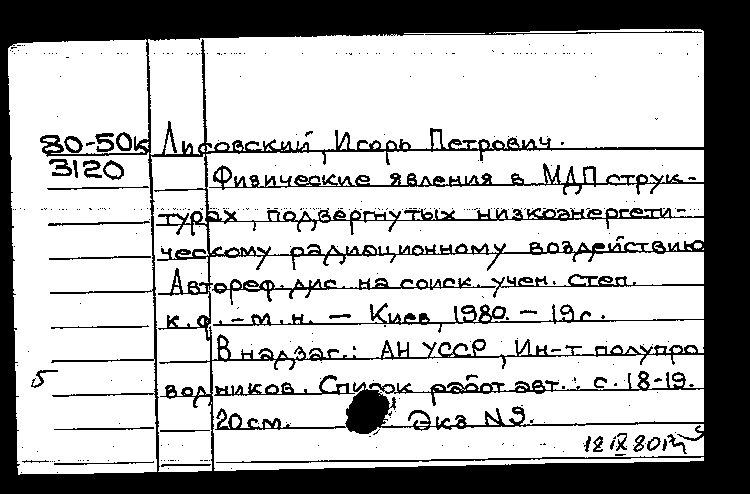 80-50к Лисовский, Игорь Петрович.
3120
Физические явления в МДП струк-
турах, подвергнутых низкоэнергети-
ческому радиационному воздействию
Автореф. дис. на соиск. учен. степ.
к.ф.-м.н. — Киев, 1980. — 19с.
В надзаг.: АН УССР, Ин-т полупро
водников. Список работ авт.: с. 18-19.
5
20см. Экз N9.
12 IX 80